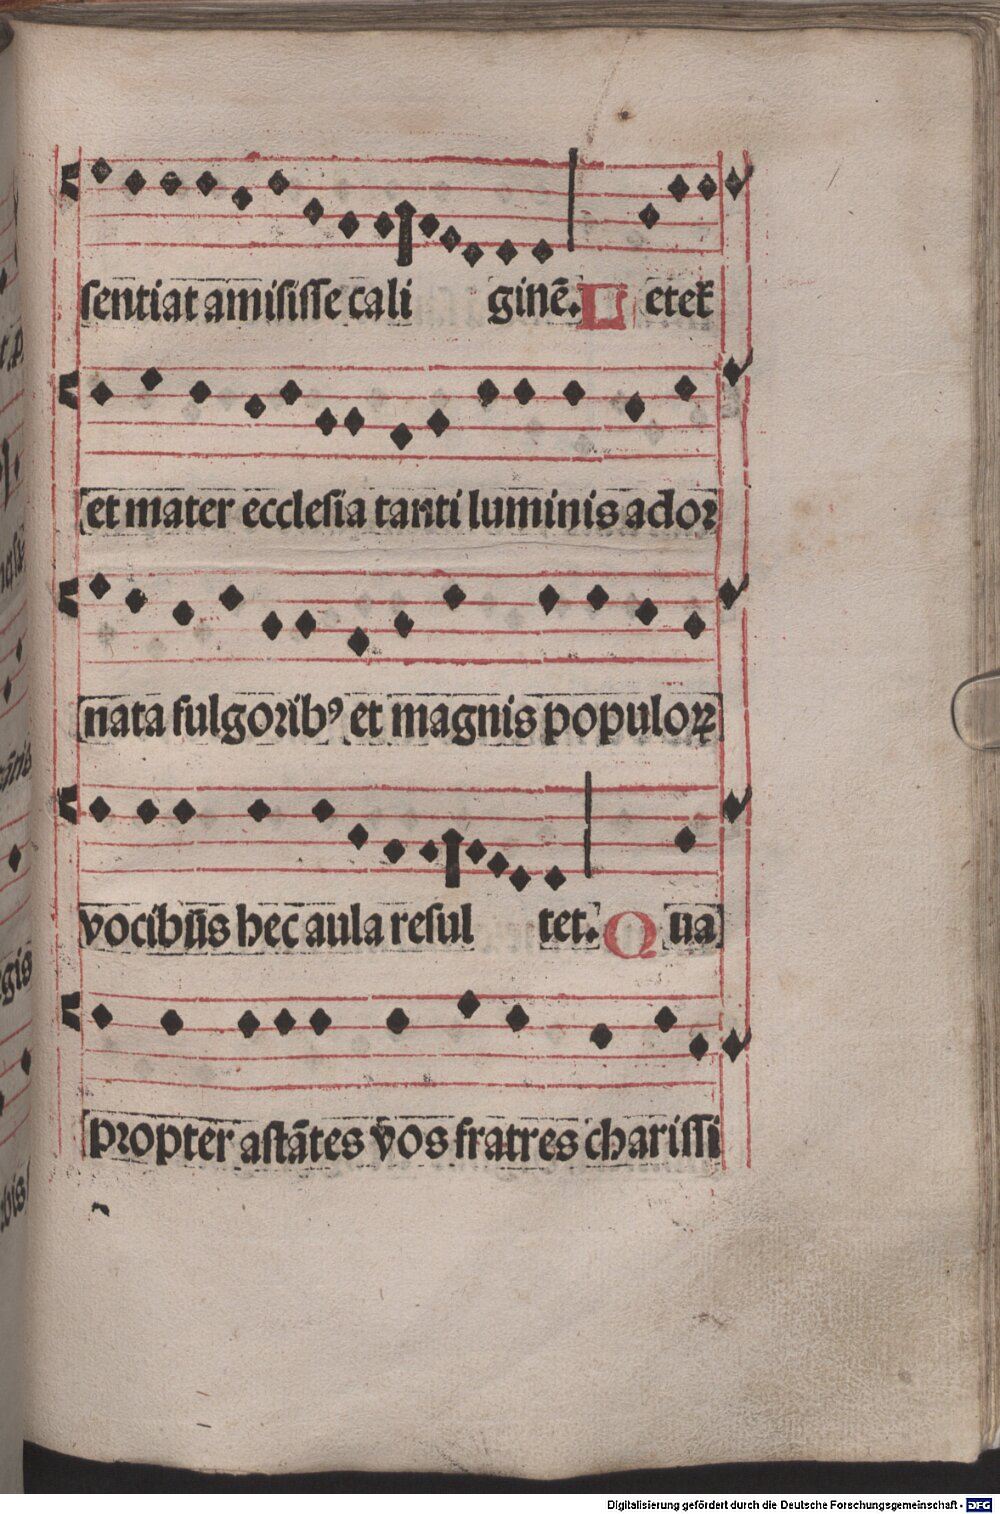 sentiat amisisse cali ginē. L etet᷑
et mater ecclesia tanti luminis adoꝛ
nata fulgoꝛibꝰ et magnis populoꝝ
vocibus hec aula resul tet. Q ua
pꝛopter astātes vos fratres charissi
Digitalisierung gefördert durch die Deutsche Forschungsgemeinschaft - DFG